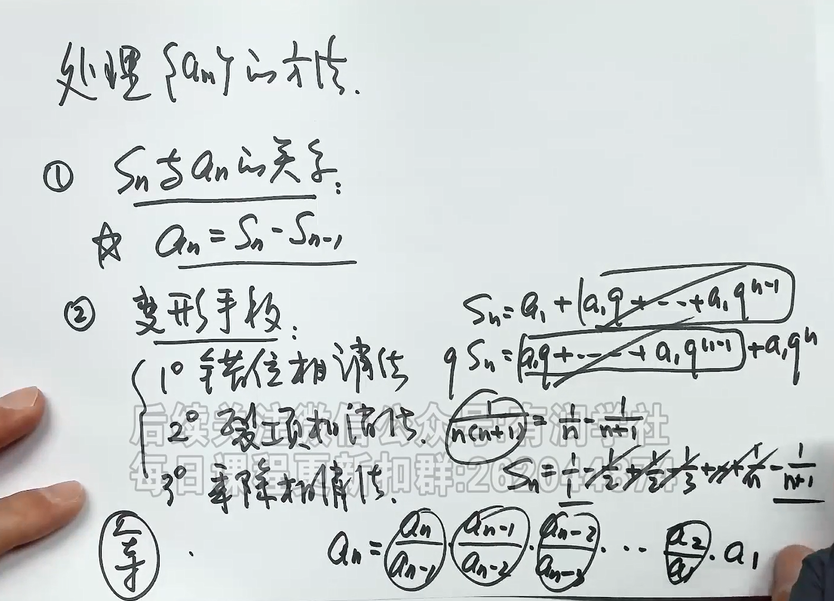 处理{an}的方法.
① Sn与an的关系:
☆ an = Sn - Sn-1
② 变形手段:
1° 错位相消法
2° 裂项相消法.
3° 乘除相消法.
Sn = a1 + (a1q + ... + a1q^n-1
qSn = a1q + ... + a1q^n-1 + a1q^n
1/n(n+1) = 1/n - 1/n+1
Sn = 1/1 - 1/2 + 1/2 - 1/3 + ... + 1/n - 1/n+1
an = an/an-1 · an-1/an-2 · an-2/an-3 · ... a2/a1 · a1
后续关注微信公众号:有渔学社
每日课程更新扣群:262044